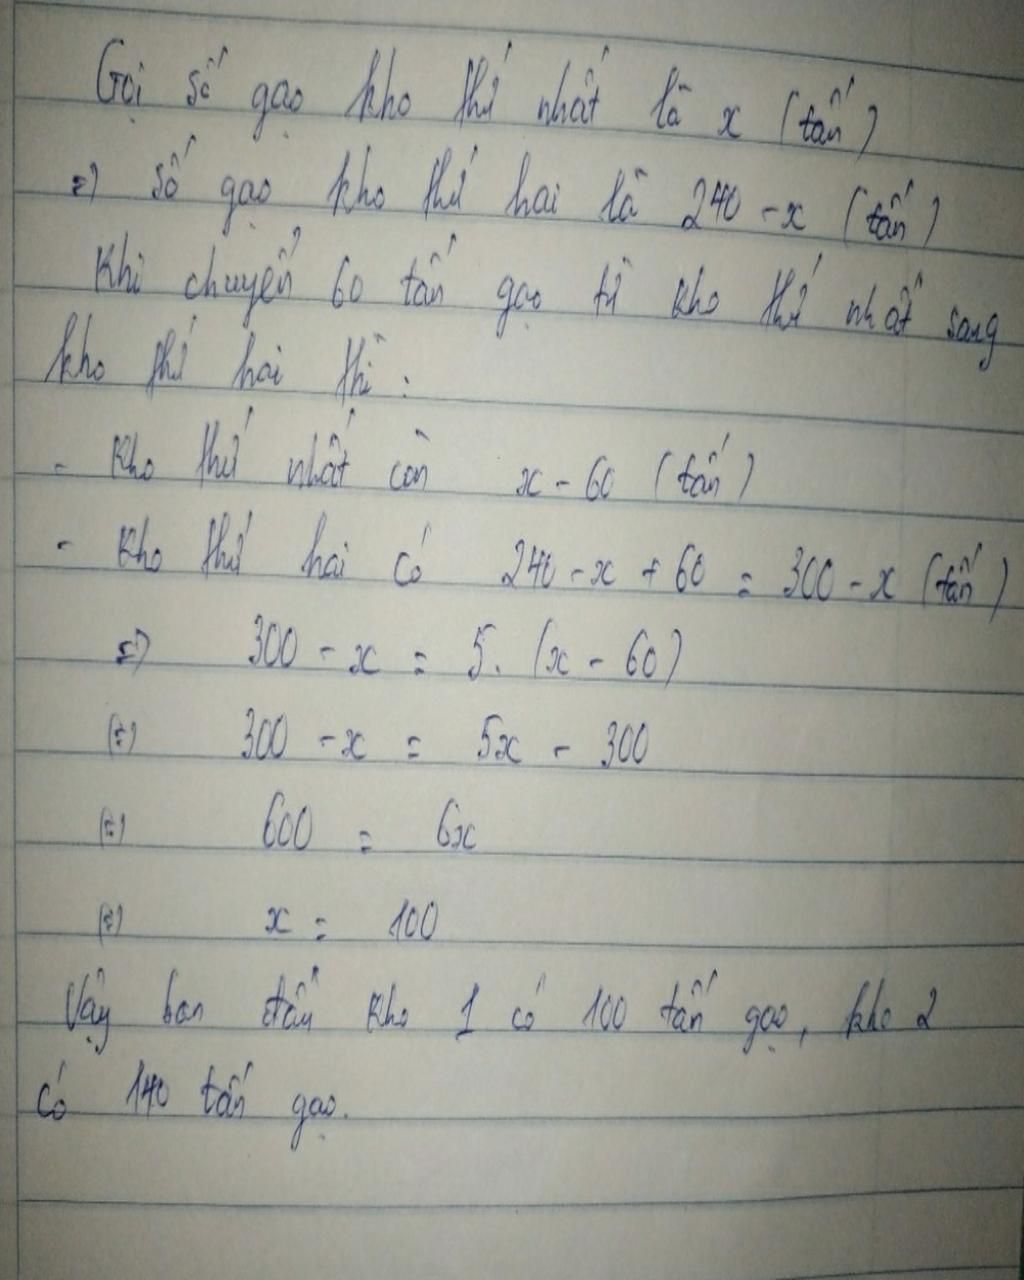 Gọi số gạo kho thứ nhất là x (tấn)
=> số gạo kho thứ hai là 240 - x (tấn)
Khi chuyển 60 tấn gạo từ kho thứ nhất sang
kho thứ hai thì :
- Kho thứ nhất còn x - 60 (tấn)
- Kho thứ hai có 240 - x + 60 = 300 - x (tấn)
=> 300 - x = 5. (x - 60)
(=) 300 - x = 5x - 300
(=) 600 = 6x
(=) x = 100
Vậy ban đầu kho 1 có 100 tấn gạo, kho 2
có 140 tấn gạo.